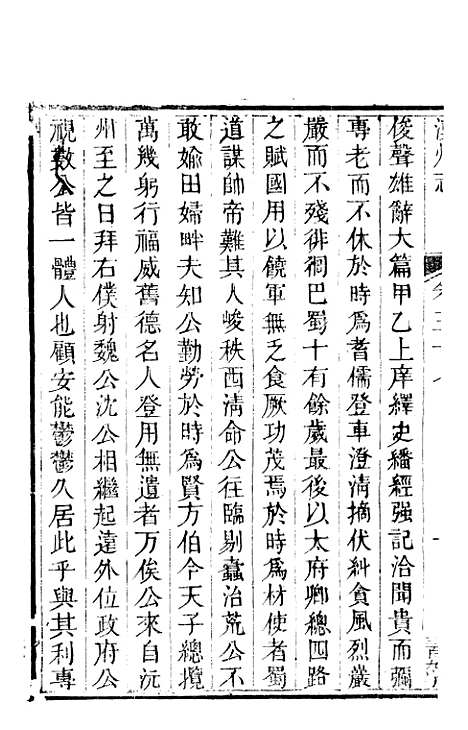 漢州志
卷三十八
俊聲雄辭大篇甲乙上庠繹史繙經强記洽聞貴而彌
專老而不休於時爲耆儒登車澄淸摘伏糾貪風烈嚴
嚴而不殘徘徊巴蜀十有餘歲最後以太府卿總四路
之賦國用以饒軍無乏食厥功茂焉於時爲材使者蜀
道謀帥帝難其人峻秩西淸命公往臨剔蠧治荒公不
敢媮田婦畔夫知公勤勞於時爲賢方伯今天子總攬
萬幾躬行福威舊德名人登用無遺者万俟公來自沅
州至之日拜右僕射魏公沈公相繼起遠外位政府公
視數公皆一體人也顧安能鬱鬱久居此乎與其利專